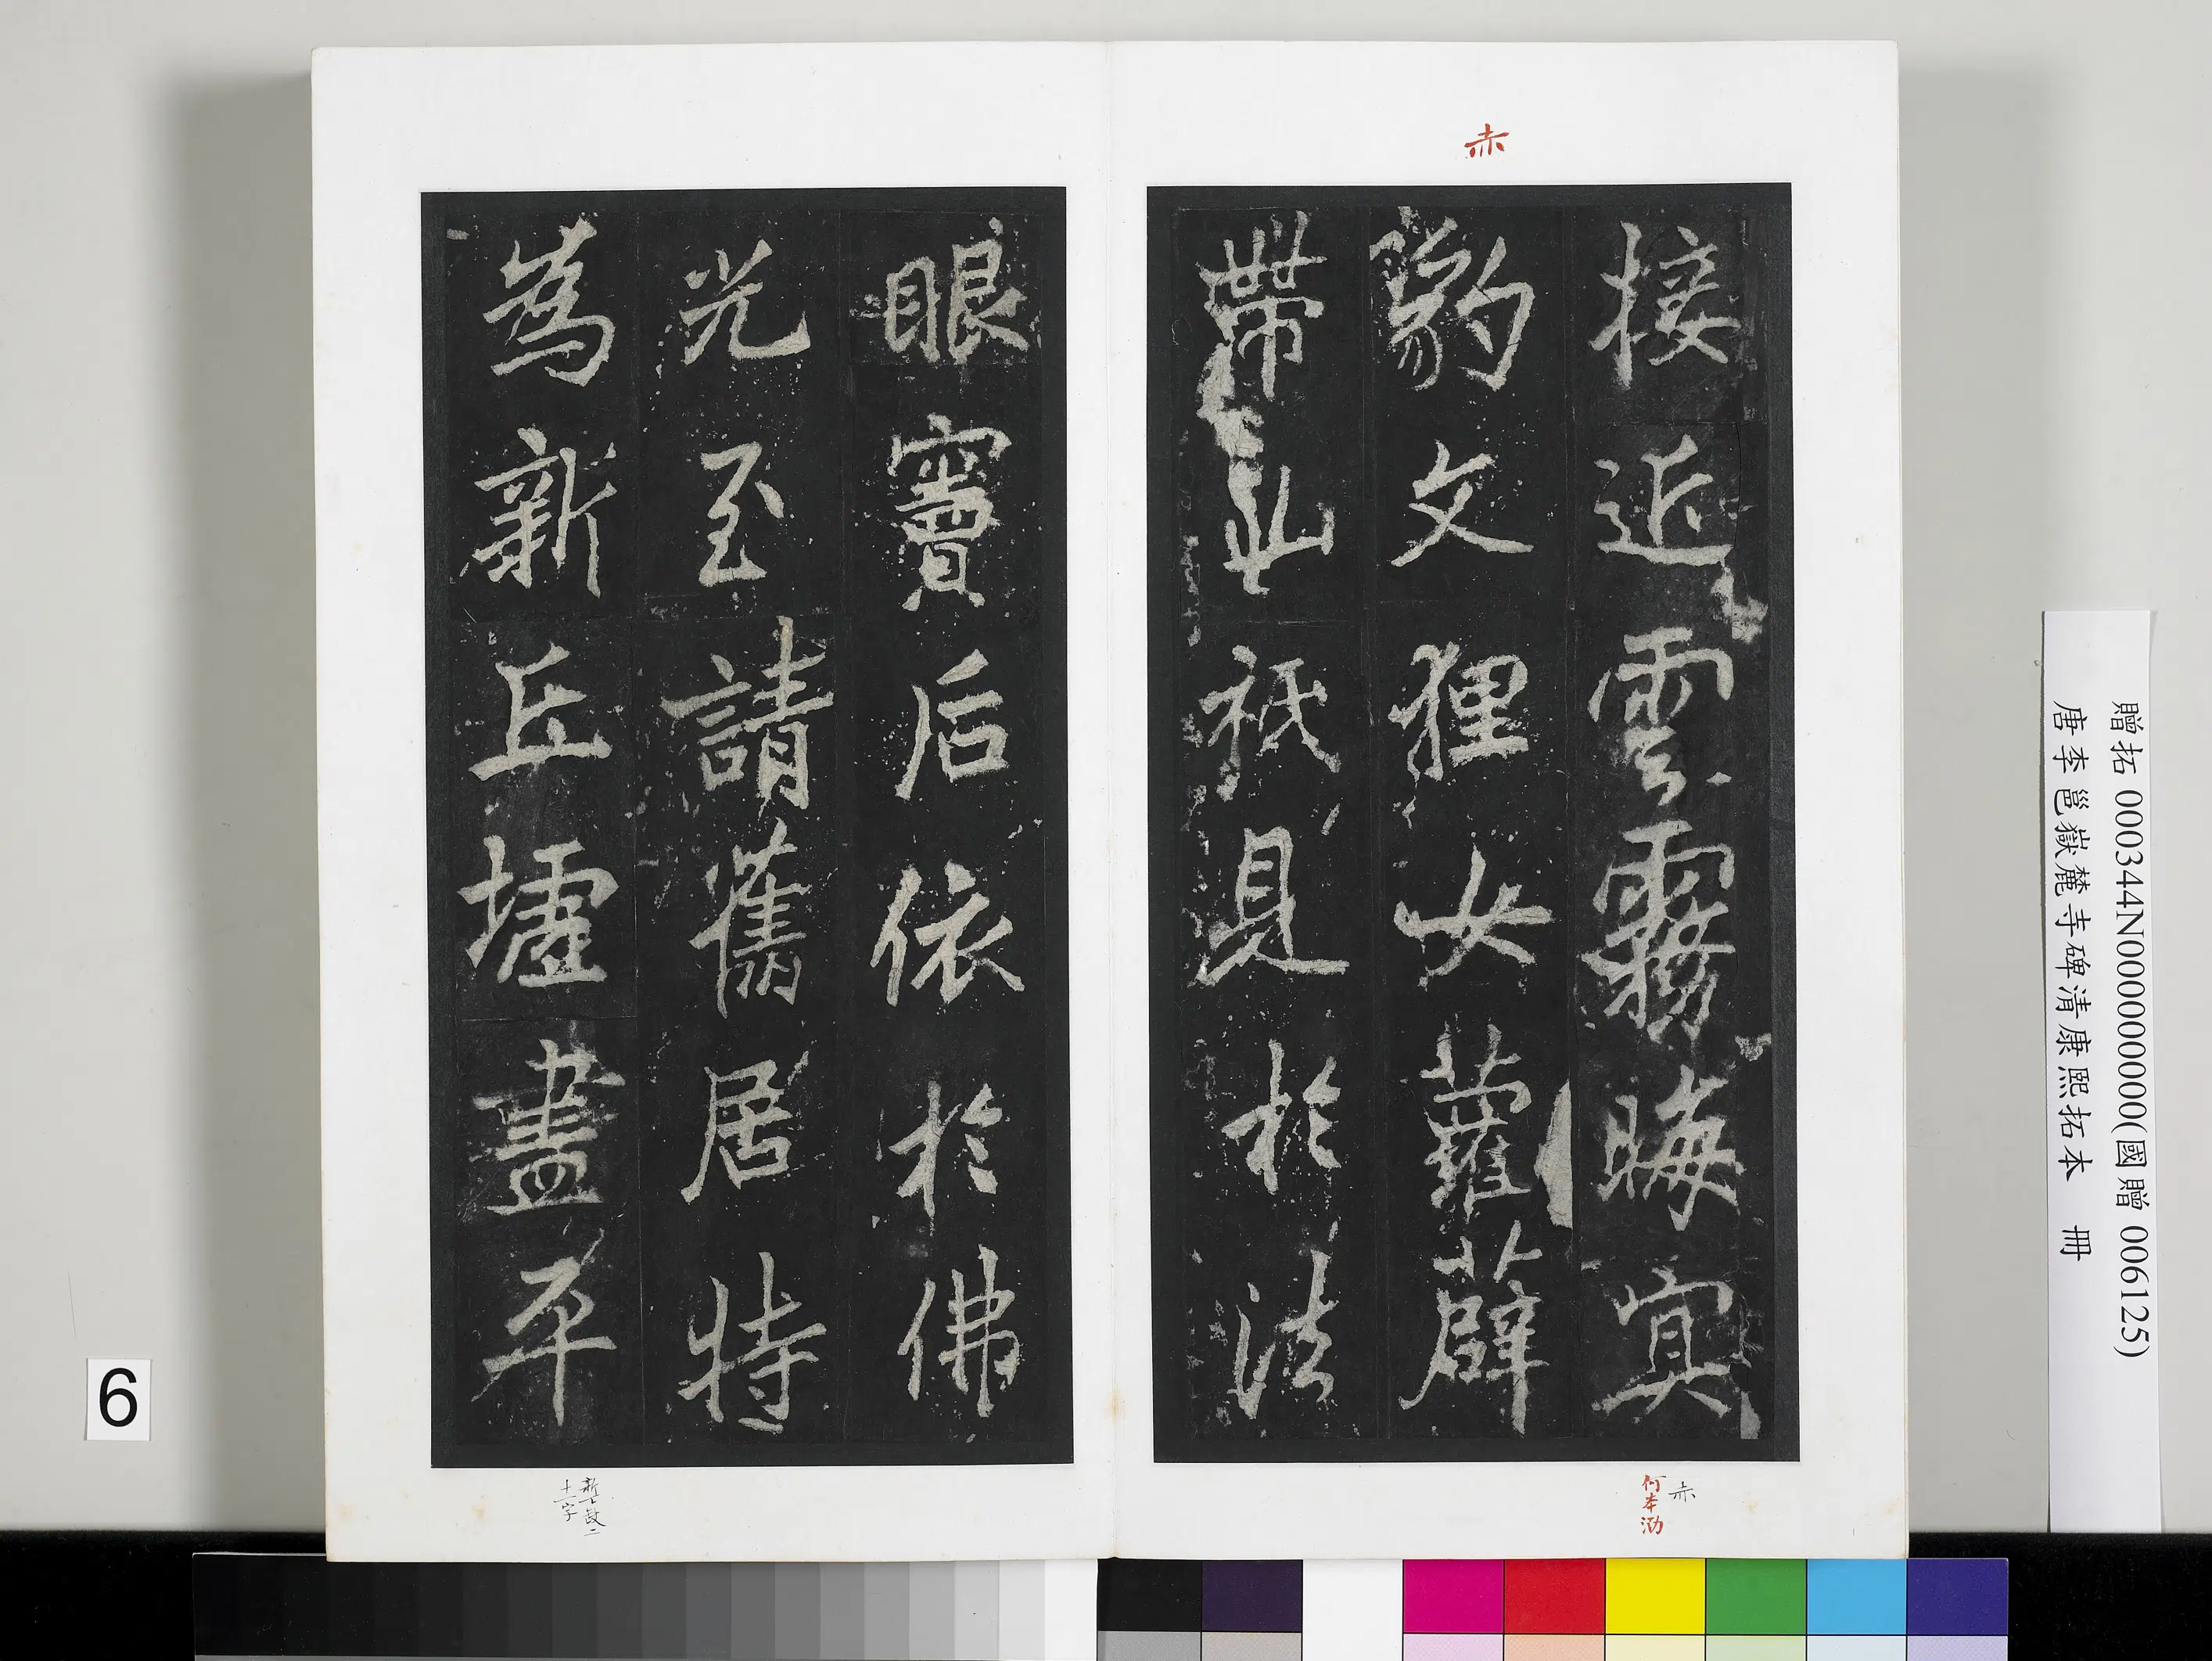 赤
接近雲霧晦冥
豹文狸女蘿薜
帶山祇見於法
眼竇后依於佛
光至請舊居特
為新丘壚盡平
赤
何本泐
十一字
6
贈拓 000344N000000000(國贈 006125)
唐李邕嶽麓寺碑清康熙拓本 冊